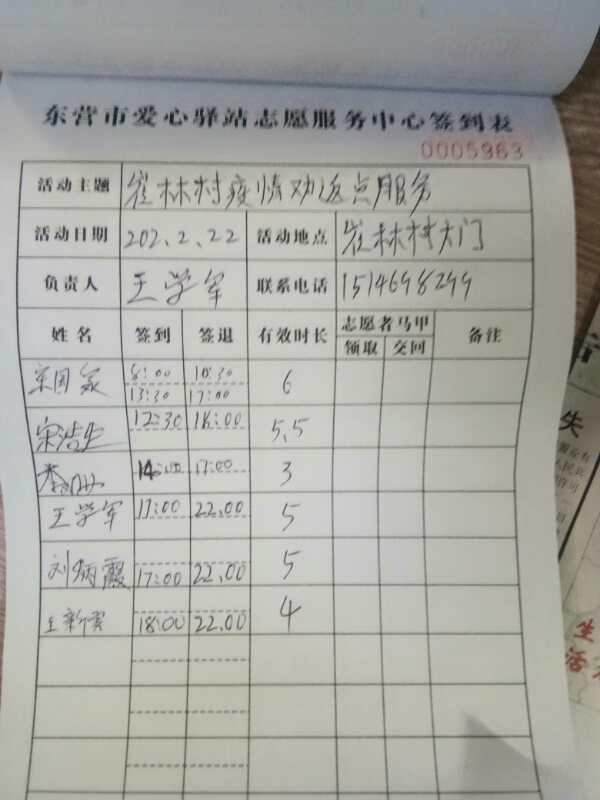 东营市爱心驿站志愿服务中心签到表
0005963
活动主题 崔林村疫情劝返点服务
活动日期 202.2.22 活动地点 崔林村大门
负责人 王学军 联系电话 1514698299
姓名 签到 签退 有效时长 志愿者马甲 备注
领取 交回
宋国家 8:00 10:30 6
13:30 17:00
宋浩生 12:30 18:00 5.5
14:00 17:00 3
王学军 17:00 22.00 5
刘炳霞 17:00 22.00 5
王新 18:00 22.00 4
失
生
活